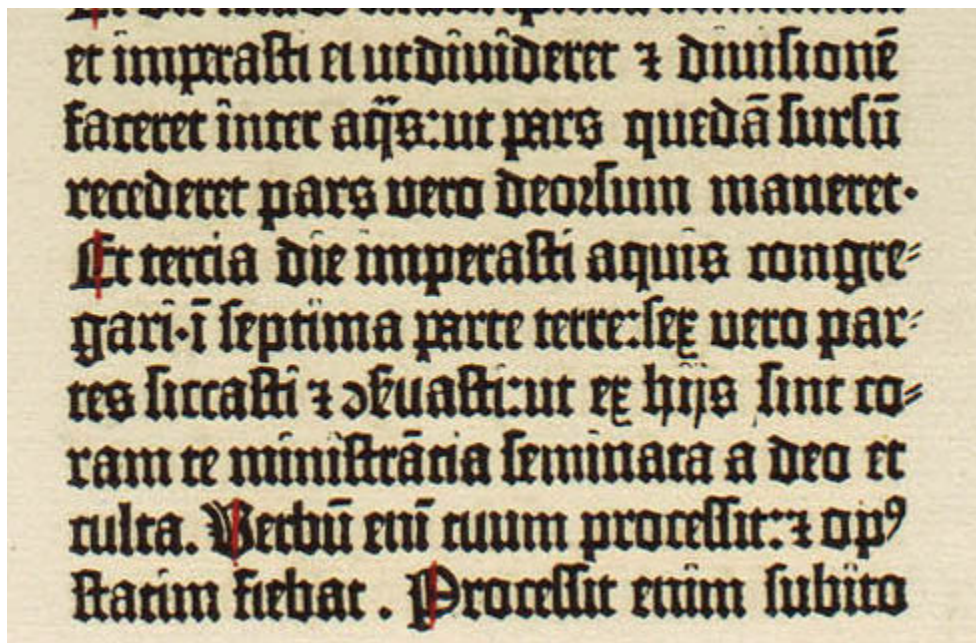 et imperasti ei ut diuideret ⁊ diuisionē
faceret inter aq̄s:ut pars quedā sursū
recederet pars vero deorsum maneret·
Et tercia die imperasti aquis congre⸗
gari·ī septima parte terre:sex vero par⸗
tes siccasti ⁊ ↄẜuasti:ut ex hijs sint co⸗
ram te ministrācia seminata a deo et
culta. Verbū enī tuum processit:⁊ opꝰ
statim fiebat . Processit enim subito